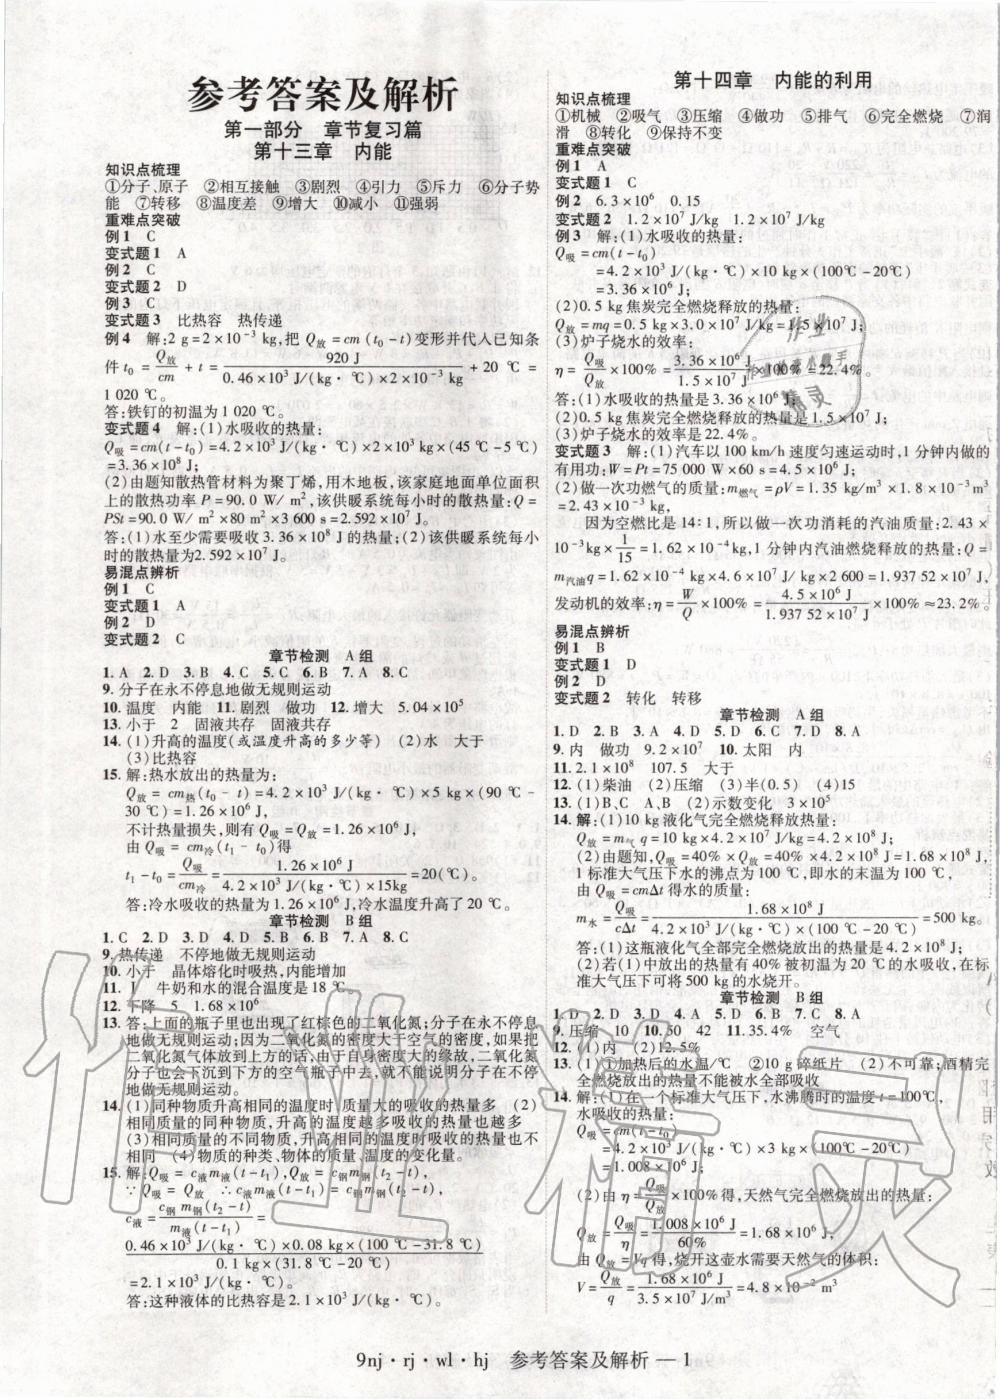 参考答案及解析
第一部分　章节复习篇
第十三章　内能
知识点梳理
①分子、原子　②相互接触　③剧烈　④引力　⑤斥力　⑥分子势
能　⑦转移　⑧温度差　⑨增大　⑩减小　⑪强弱
重难点突破
例 1　C
变式题 1　A
例 2　C
变式题 2　D
例 3　C
变式题 3　比热容　热传递
例 4　解:2 g=2×10⁻³ kg,把 Q放=cm (t₀-t)变形并代人已知条
件 t₀=Q放/cm+t=920 J/(0.46×10³ J/(kg·℃)×2×10⁻³ kg)+20 ℃=
1 020 ℃。
答:铁钉的初温为1 020 ℃。
变式题 4　解:(1)水吸收的热量:
Q吸=cm(t-t₀)=4.2×10³J/(kg·℃)×2×10³ kg×(45 ℃-5℃)
=3.36×10⁸ J;
(2)由题知散热管材料为聚丁烯,用木地板,该家庭地面单位面积
上的散热功率 P=90.0 W/ m²,该供暖系统每小时的散热量:Q=
PSt=90.0 W/m²×80 m²×3 600 s=2.592×10⁷ J。
答:(1)水至少需要吸收3.36×10⁸ J的热量;(2)该供暖系统每小
时的散热量为2.592×10⁷ J。
易混点辨析
例 1　C
变式题 1　A
例 2　D
变式题 2　C
章节检测　A 组
1. A　2. D　3. B　4. C　5. C　6. B　7. A　8. C
9. 分子在永不停息地做无规则运动
10. 温度　内能　11. 剧烈　做功　12. 增大　5.04×10⁵
13. 小于　2　固液共存　固液共存
14. (1)升高的温度(或温度升高的多少等)　(2)水　大于
(3)比热容
15. 解:热水放出的热量为:
Q放=cm热(t₀-t)=4.2×10³ J/(kg·℃)×5 kg×(90 ℃-
30 ℃)=1.26×10⁶ J,
不计热量损失,则有 Q吸=Q放=1.26×10⁶ J,
由 Q吸=cm冷(t₁-t₀)得
t₁-t₀=Q吸/cm冷=1.26×10⁶ J/(4.2×10³ J/(kg·℃)×15kg)=20(℃)。
答:冷水吸收的热量为1.26×10⁶ J,冷水温度升高了20 ℃。
章节检测　B 组
1. C　2. D　3. D　4. D　5. B　6. B　7. A　8. C
9. 热传递　不停地做无规则运动
10. 小于　晶体熔化时吸热,内能增加
11. 1　牛奶和水的混合温度是18 ℃。
12. 下降　5　1.68×10⁶
13. 答:上面的瓶子里也出现了红棕色的二氧化氮;分子在永不停息
地做无规则运动;因为二氧化氮的密度大于空气的密度,如果把
二氧化氮气体放到上方的话,由于自身密度大的缘故,二氧化氮
分子也会下沉到下方的空气瓶子中去,就不能说明是分子在不停
地做无规则运动。
14. (1)同种物质升高相同的温度时,质量大的吸收的热量多　(2)
相同质量的同种物质,升高的温度越大吸收的热量也越多
(3)相同质量的不同物质,升高相同的温度吸收的热量也不
相同　(4)物质的种类、物体的质量、温度的变化量。
15. 解:Q吸=c液m液(t-t₁),Q放=c钢m钢(t₂-t),
∵Q吸=Q放　∴c液m液(t-t₁)=c钢m钢(t₂-t)
c液=c钢m钢(t₂-t)/m液(t-t₁)=
0.46×10³ J/(kg·℃)×0.08 kg×(100 ℃-31.8 ℃)/(0.1 kg×(31.8 ℃-20 ℃))
=2.1×10³J/(kg·℃)。
答:这种液体的比热容是2.1×10³ J/(kg·℃)。
第十四章　内能的利用
知识点梳理
①机械　②吸气　③压缩　④做功　⑤排气　⑥完全燃烧　⑦润
滑　⑧转化　⑨保持不变
重难点突破
例 1　A
变式题 1　C
例 2　6.3×10⁶　0.15
变式题 2　1.2×10⁷ J/kg　1.2×10⁷ J/kg
例 3　解:(1)水吸收的热量:
Q吸=cm(t-t₀)
=4.2×10³ J/(kg·℃)×10 kg×(100℃-20℃)
=3.36×10⁶ J;
(2)0.5 kg焦炭完全燃烧释放的热量:
Q放=mq=0.5 kg×3.0×10⁷ J/kg=1.5×10⁷ J;
(3)炉子烧水的效率:
η=Q吸/Q放×100%=3.36×10⁶ J/1.5×10⁷ J×100%=22.4%。
答:(1)水吸收的热量是3.36×10⁶ J;
(2)0.5 kg 焦炭完全燃烧释放的热量是1.5×10⁷ J;
(3)炉子烧水的效率是22.4%。
变式题 3　解:(1)汽车以 100 km/h 速度匀速运动时,1 分钟内做的
有用功:W=Pt=75 000 W×60 s=4.5×10⁶ J;
(2)一次功燃气的质量:m燃气=ρV=1.35 kg/m³×1.8×10⁻³ m³
=2.43×10⁻³ kg,
因为空燃比是14:1,所以做一次功消耗的汽油质量:2.43×
10⁻³kg×1/15=1.62×10⁻⁴ kg,1 分钟内汽油燃烧释放的热量:Q=
m汽油q=1.62×10⁻⁴ kg×4.6×10⁷ J/kg×2 600=1.937 52×10⁷ J,
发动机的效率:η=W/Q×100%=4.5×10⁶ J/1.937 52×10⁷ J×100%≈23.2%。
易混点辨析
例 1　B
变式题 1　D
例 2　D
变式题 2　转化　转移
章节检测　A 组
1. D　2. B　3. A　4. D　5. D　6. C　7. D　8. A
9. 内　做功　9.2×10⁷　10. 太阳　内
11. 2.1×10⁸　107.5　大于
12. (1)柴油　(2)压缩　(3)半(0.5)　(4)15
13. (1)B、C　A、B　(2)示数变化　3×10⁵
14. 解:(1)10 kg液化气完全燃烧释放热量:
Q放=m气q=10 kg×4.2×10⁷ J/kg=4.2×10⁸ J;
(2)由题知,Q吸=40%×Q放=40%×4.2×10⁸ J=1.68×10⁸ J,
1 标准大气压下水的沸点为 100 ℃,即水的末温为 100 ℃,
由 Q吸=cmΔt得水的质量:
m水=Q吸/cΔt=1.68×10⁸ J/(4.2×10³ J/(kg·℃)×(100 ℃-20 ℃))=500 kg。
答:(1)这瓶液化气全部完全燃烧放出的热量是4.2×10⁸ J;
(2)若(1)中放出的热量有 40%被初温为 20 ℃的水吸收,在标
准大气压下可将500 kg的水烧开。
章节检测　B 组
1. D　2. C　3. D　4. A　5. D　6. C　7. C　8. A
9. 压缩　10　10. 50　42　11. 35.4%　空气
12. (1)内　(2)12.5%
13. (1)①加热后的水温/℃　②10 g碎纸片　(2)不可靠;酒精完
全燃烧放出的热量不能被水全部吸收
14. 解:(1)在一个标准大气压下,水沸腾时的温度t=100℃,
水吸收的热量:
Q吸=cm(t-t₀)
=4.2×10³ J/(kg·℃)×3 kg×(100 ℃-20 ℃)
=1.008×10⁶ J
(2)由 η=Q吸/Q放×100%得,天然气完全燃烧放出的热量:
Q放=Q吸/η=1.008×10⁶ J/60%=1.68×10⁶ J,
由 Q放=Vq得,烧开这壶水需要天然气的体积:
V=Q放/q=1.68×10⁶ J/3.5×10⁷ J/m³=4.8×10⁻² m³
9nj·rj·wl·hj　参考答案及解析 — 1
作业精灵